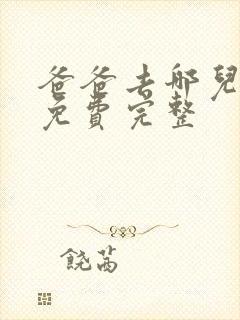 爸爸去哪兒
免費完整
饒芮